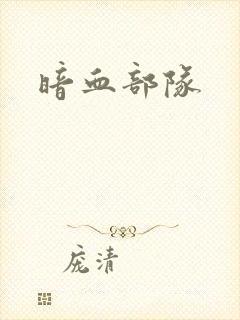 暗血部隊
庞清